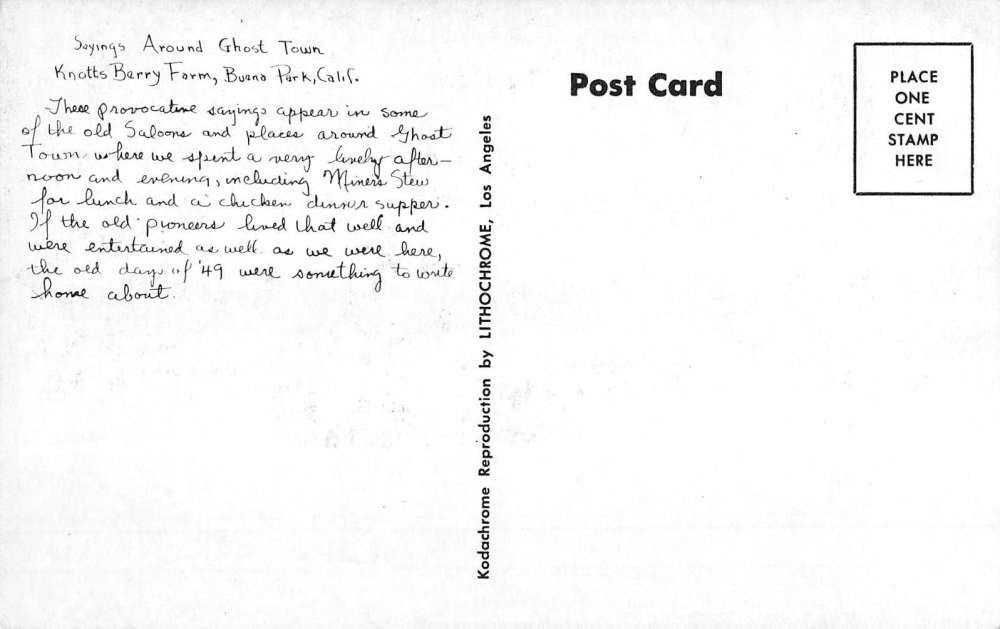 Sayings Around Ghost Town
Knotts Berry Farm, Buena Park, Calif.
These provocative sayings appear in some
of the old Saloons and places around Ghost
Town where we spent a very lively after-
noon and evening, including Miners Stew
for lunch and a chicken dinner supper.
If the old pioneers lived that well and
were entertained as well as we were here,
the old days of '49 were something to write
home about.
Kodachrome Reproduction by LITHOCHROME, Los Angeles
Post Card
PLACE
ONE
CENT
STAMP
HERE